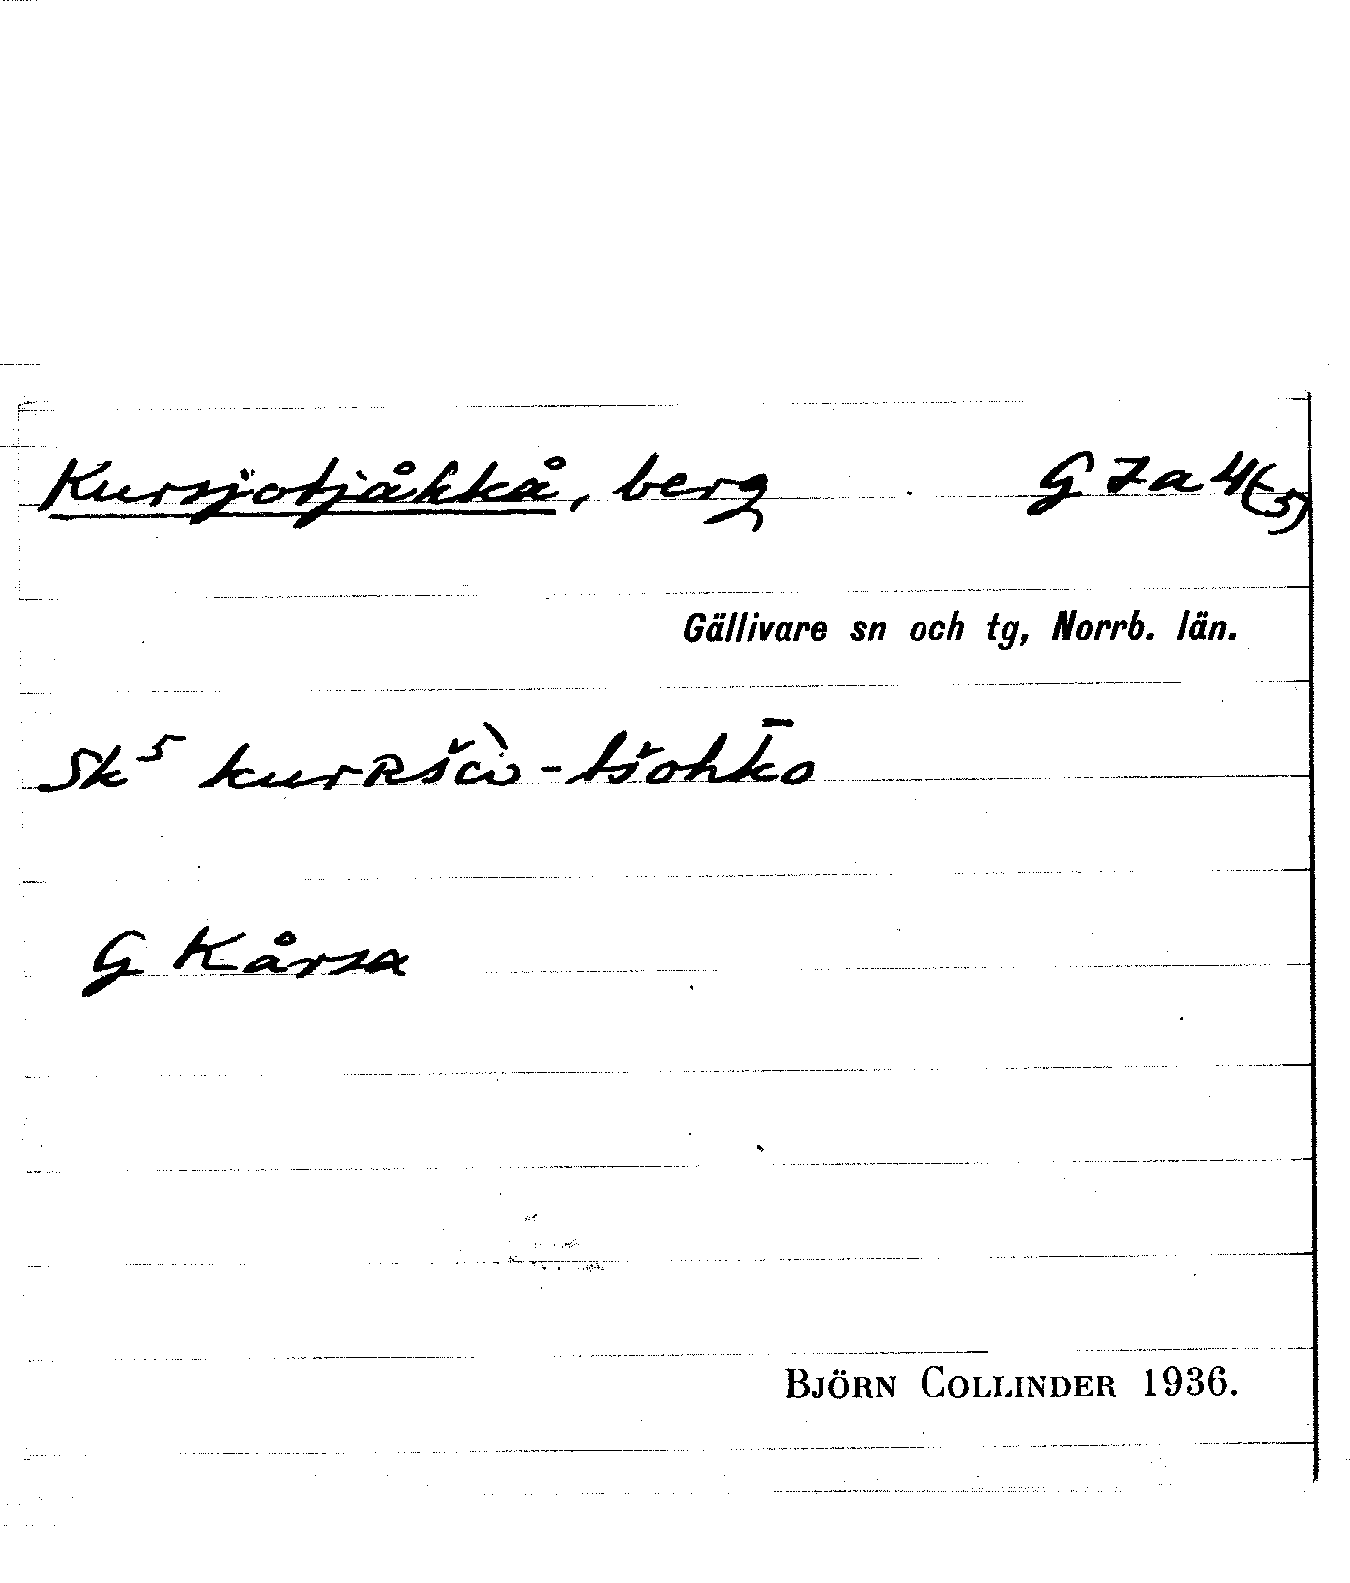 Kursjotjåkkå, berg G 7a4(-5)
Gällivare sn och tg, Norrb. län.
Sk⁵ kurʀšὼ-tšohk̄o
G Kårsa
BJÖRN COLLINDER 1936.